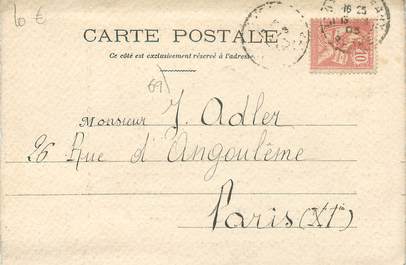 6 €
CARTE POSTALE
Ce côté est exclusivement réservé à l'adresse
69
Monsieur J. Adler
26 Rue d'Angoulême
Paris (XIe)
16 25
10